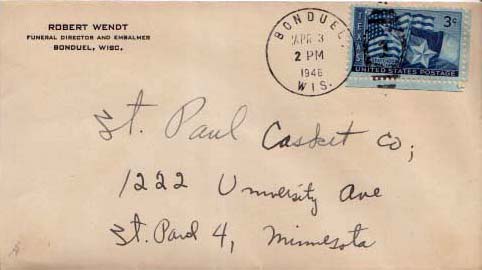 ROBERT WENDT
FUNERAL DIRECTOR AND EMBALMER
BONDUEL, WISC.
BONDUEL
APR 3
2 PM
1946
WIS.
TEXAS
3¢
UNITED STATES POSTAGE
St. Paul Casket Co;
1222 University Ave
St. Paul 4, Minnesota